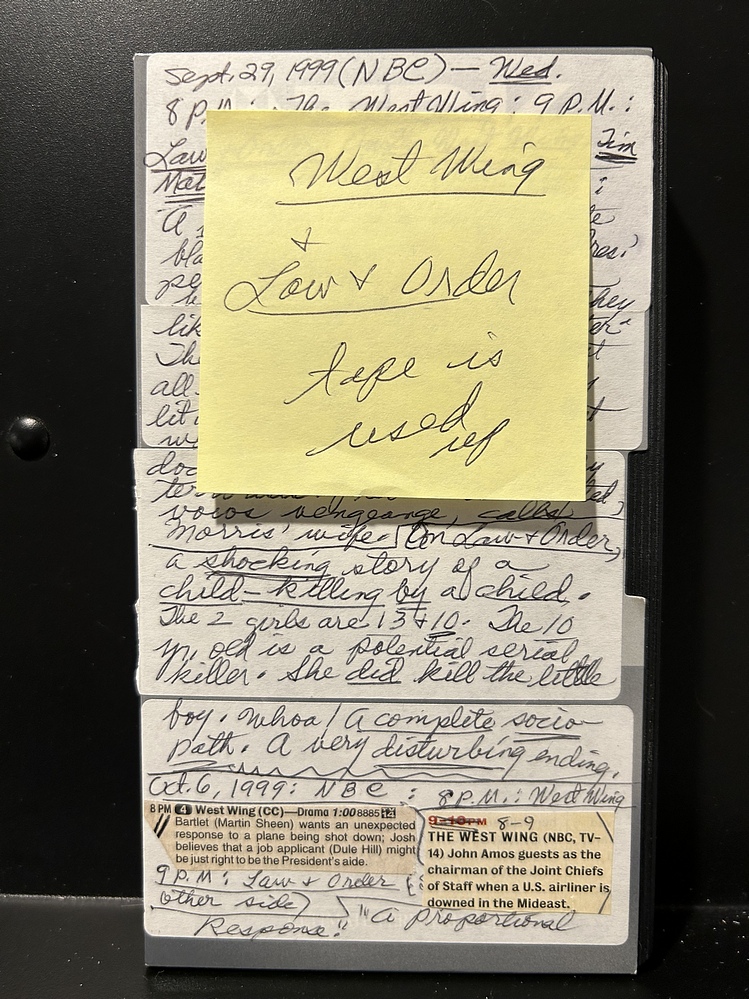 Sept. 29, 1999 (NBC) — Wed.
8 P.M.: The West Wing: 9 P.M.:
Law
Jim
Mat
:
A
bla
pe
hey
lik
The
all
lit
w
doc
vows vengeance, called
Morris' wife. On Law + Order,
a shocking story of a
child-killing by a child.
The 2 girls are 13 + 10. The 10
yr. old is a potential serial
killer. She did kill the little
boy. Whoa! A complete socio-
path. A very disturbing ending.
Oct. 6, 1999: NBC : 8 P.M.: West Wing
8 PM 4 West Wing (CC)—Drama 1:00 8885
Bartlet (Martin Sheen) wants an unexpected
response to a plane being shot down; Josh
believes that a job applicant (Dule Hill) might
be just right to be the President's aide.
9-10PM 8-9
THE WEST WING (NBC, TV-
14) John Amos guests as the
chairman of the Joint Chiefs
of Staff when a U.S. airliner is
downed in the Mideast.
9 P.M: Law + Order
other side)
"A Proportional
Response."
West Wing
+
Law + Order
tape is
used
up